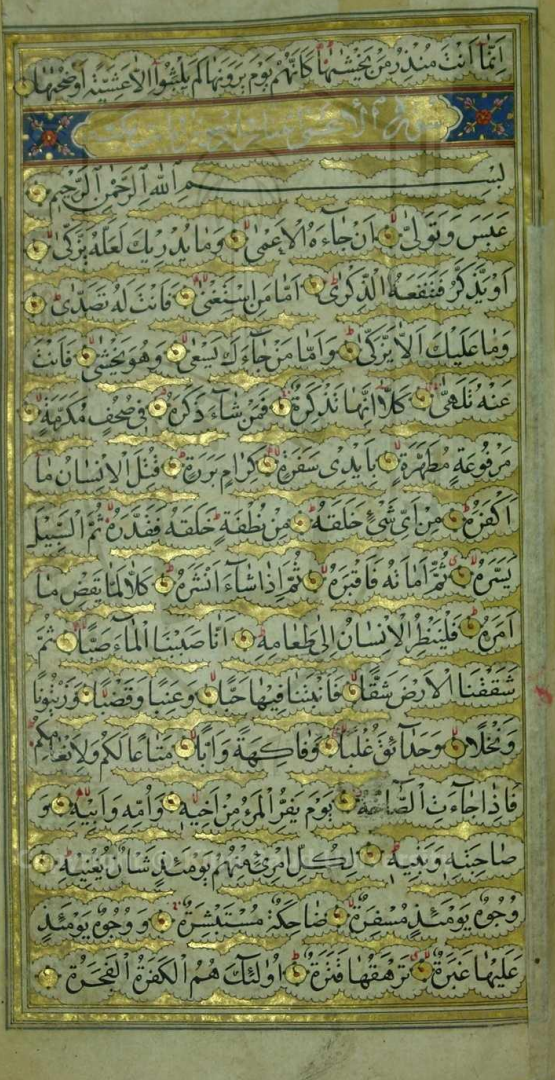 اِنَّمَا اَنْتَ مُنْذِرُ مَنْ يَخْشٰيهَا كَاَنَّهُمْ يَوْمَ يَرَوْنَهَا لَمْ يَلْبَثُوا اِلَّا عَشِيَّةً اَوْ ضُحٰيهَا
بِسْمِ اللهِ الرَّحْمٰنِ الرَّحِيمِ
عَبَسَ وَتَوَلّٰى اَنْ جَاۤءَهُ الْاَعْمٰى وَمَا يُدْرِيكَ لَعَلَّهُ يَزَّكّٰى
اَوْ يَذَّكَّرُ فَتَنْفَعَهُ الذِّكْرٰى اَمَّا مَنِ اسْتَغْنٰى فَاَنْتَ لَهُ تَصَدّٰى
وَمَا عَلَيْكَ اَلَّا يَزَّكّٰى وَاَمَّا مَنْ جَاۤءَكَ يَسْعٰى وَهُوَ يَخْشٰى فَاَنْتَ
عَنْهُ تَلَهّٰى كَلَّا اِنَّهَا تَذْكِرَةٌ فَمَنْ شَاۤءَ ذَكَرَهُ فِى صُحُفٍ مُكَرَّمَةٍ
مَرْفُوعَةٍ مُطَهَّرَةٍ بِاَيْدِى سَفَرَةٍ كِرَامٍ بَرَرَةٍ قُتِلَ الْاِنْسَانُ مَا
اَكْفَرَهُ مِنْ اَىِّ شَىْءٍ خَلَقَهُ مِنْ نُطْفَةٍ خَلَقَهُ فَقَدَّرَهُ ثُمَّ السَّبِيلَ
يَسَّرَهُ ثُمَّ اَمَاتَهُ فَاَقْبَرَهُ ثُمَّ اِذَا شَاۤءَ اَنْشَرَهُ كَلَّا لَمَّا يَقْضِ مَا
اَمَرَهُ فَلْيَنْظُرِ الْاِنْسَانُ اِلٰى طَعَامِهِ اَنَّا صَبَبْنَا الْمَاۤءَ صَبًّا ثُمَّ
شَقَقْنَا الْاَرْضَ شَقًّا فَاَنْبَتْنَا فِيهَا حَبًّا وَعِنَبًا وَقَضْبًا وَزَيْتُونًا
وَنَخْلًا وَحَدَاۤئِقَ غُلْبًا وَفَاكِهَةً وَاَبًّا مَتَاعًا لَكُمْ وَلِاَنْعَامِكُمْ
فَاِذَا جَاۤءَتِ الصَّاۤخَّةُ يَوْمَ يَفِرُّ الْمَرْءُ مِنْ اَخِيهِ وَاُمِّهِ وَاَبِيهِ وَ
صَاحِبَتِهِ وَبَنِيهِ لِكُلِّ امْرِئٍ مِنْهُمْ يَوْمَئِذٍ شَاْنٌ يُغْنِيهِ
وُجُوهٌ يَوْمَئِذٍ مُسْفِرَةٌ ضَاحِكَةٌ مُسْتَبْشِرَةٌ وَوُجُوهٌ يَوْمَئِذٍ
عَلَيْهَا غَبَرَةٌ تَرْهَقُهَا قَتَرَةٌ اُولٰئِكَ هُمُ الْكَفَرَةُ الْفَجَرَةُ